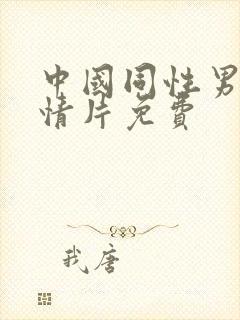 中國同性男
情片免費
我唐